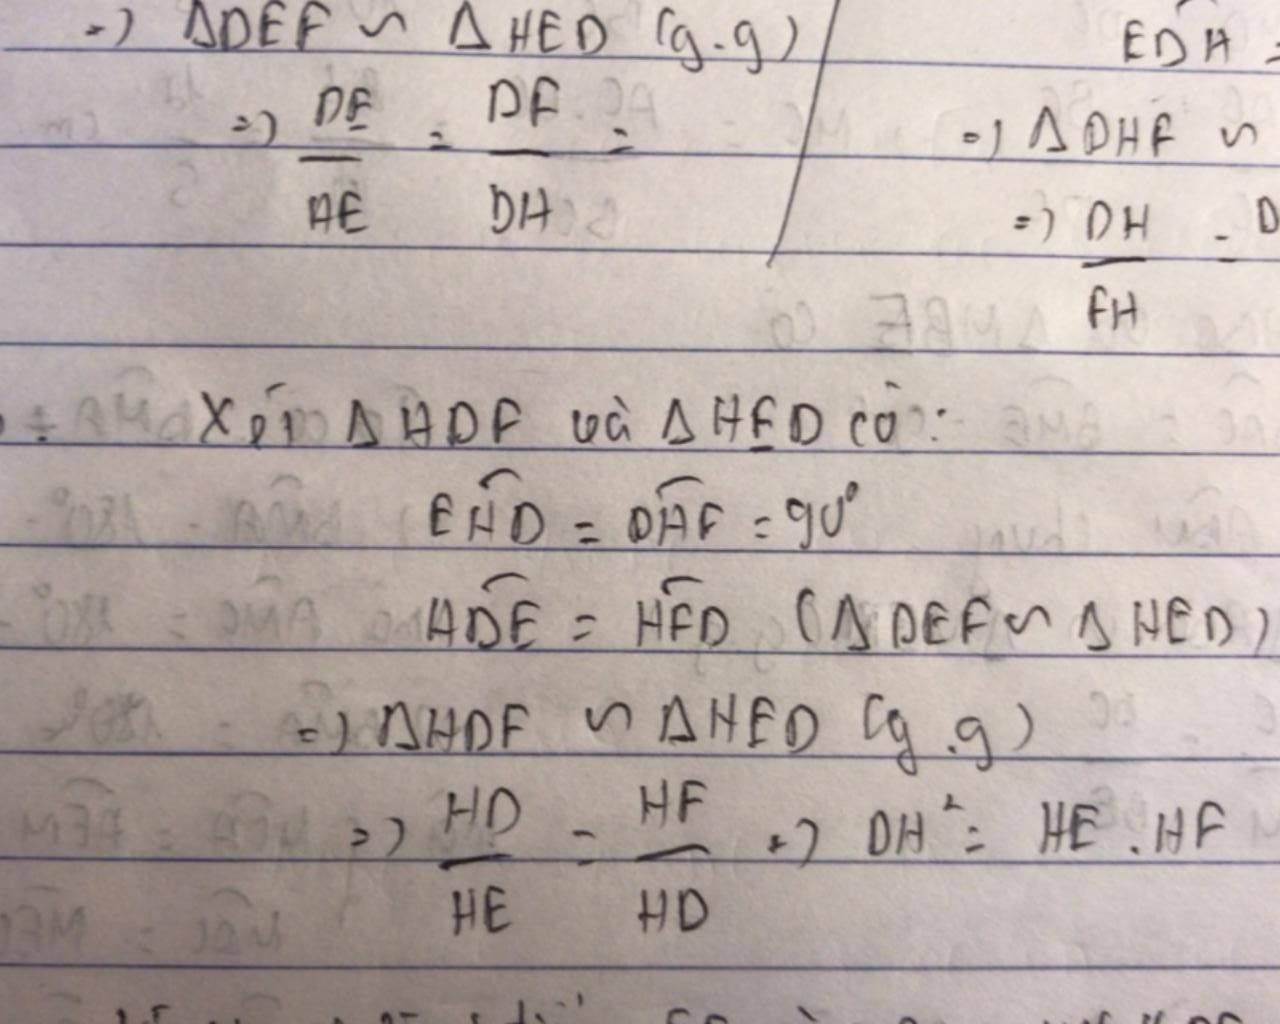 =) ΔDEF ∽ ΔHED (g.g)
=) DE/HE = DF/DH =
EDH =
=) ΔDHF ∽
=) DH/FH = D
Xét ΔHDF và ΔHED có:
EHD = DHF = 90°
HDE = HFD (ΔDEF ∽ ΔHED)
=) ΔHDF ∽ ΔHED (g.g)
=) HD/HE = HF/HD =) DH² = HE.HF